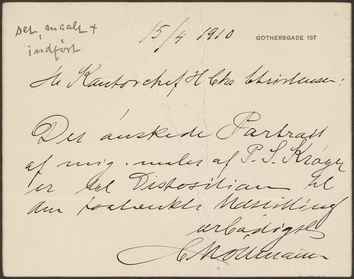 Set, maalt +
indført
15/4 1910
GOTHERSGADE 157
Hr Kontorchef H Chr Christensen:
Det ønskede Portræt
af mig, malet af P. S. Krøyer
er til Disposition til
den paatænkte Udstilling
ærbødigst